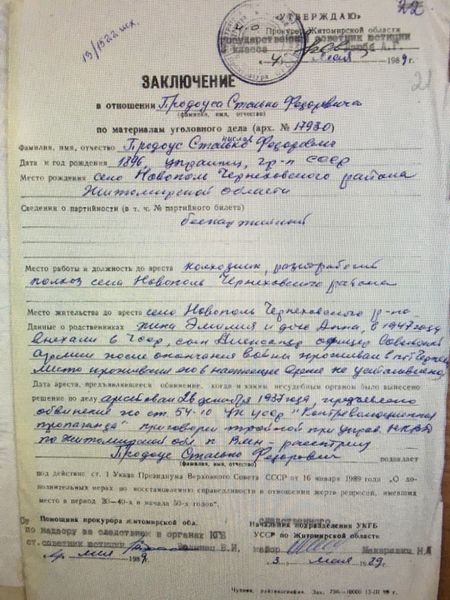 22
«УТВЕРЖДАЮ»
Прокурор Житомирской области
государственный советник юстиции
класса
«4» мая 1989 г.
19/1522
21
ЗАКЛЮЧЕНИЕ
в отношении Продоуса Федоровича
(фамилия, имя, отчество)
по материалам уголовного дела (арх. № 17930)
Фамилия, имя, отчество Продоус Федорович
Дата и год рождения 1896, гр-н СССР
Место рождения село Новополь Черняховского района
Житомирской области
Сведения о партийности (в т. ч. № партийного билета)
беспартийный
Место работы и должность до ареста колхозник, разнорабочий
колхоз села Новополь Черняховского района
Место жительства до ареста село Новополь Черняховского р-на
Данные о родственниках жена Эмилия и дочь Анна, в 1947 году
выехали в сын Александр офицер Советской
армии после окончания войны проживал в
место проживания его в настоящее время не установлено
Дата ареста, предъявлявшееся обвинение, когда и каким несудебным органом было вынесено
решение по делу арестован 26 декабря 1937 года, предъявлено
обвинение по ст. 54-10 УК УССР "Контрреволюционная
пропаганда" приговорен тройкой при управ. НКВД
по Житомирской обл. к ВМН - расстрелу
Продоус Федорович подпадает
(фамилия, имя, отчество)
под действие ст. 1 Указа Президиума Верховного Совета СССР от 16 января 1989 года «О до-
полнительных мерах по восстановлению справедливости в отношении жертв репрессий, имевших
место в период 30—40-х и начала 50-х годов».
Помощник прокурора Житомирской обл.
по надзору за следствием в органах КГБ
ст. советник юстиции В.И.
4 мая 1989г.
следственного
Начальник подразделения УКГБ
УССР по Житомирской области
майор
3 мая 1989г.